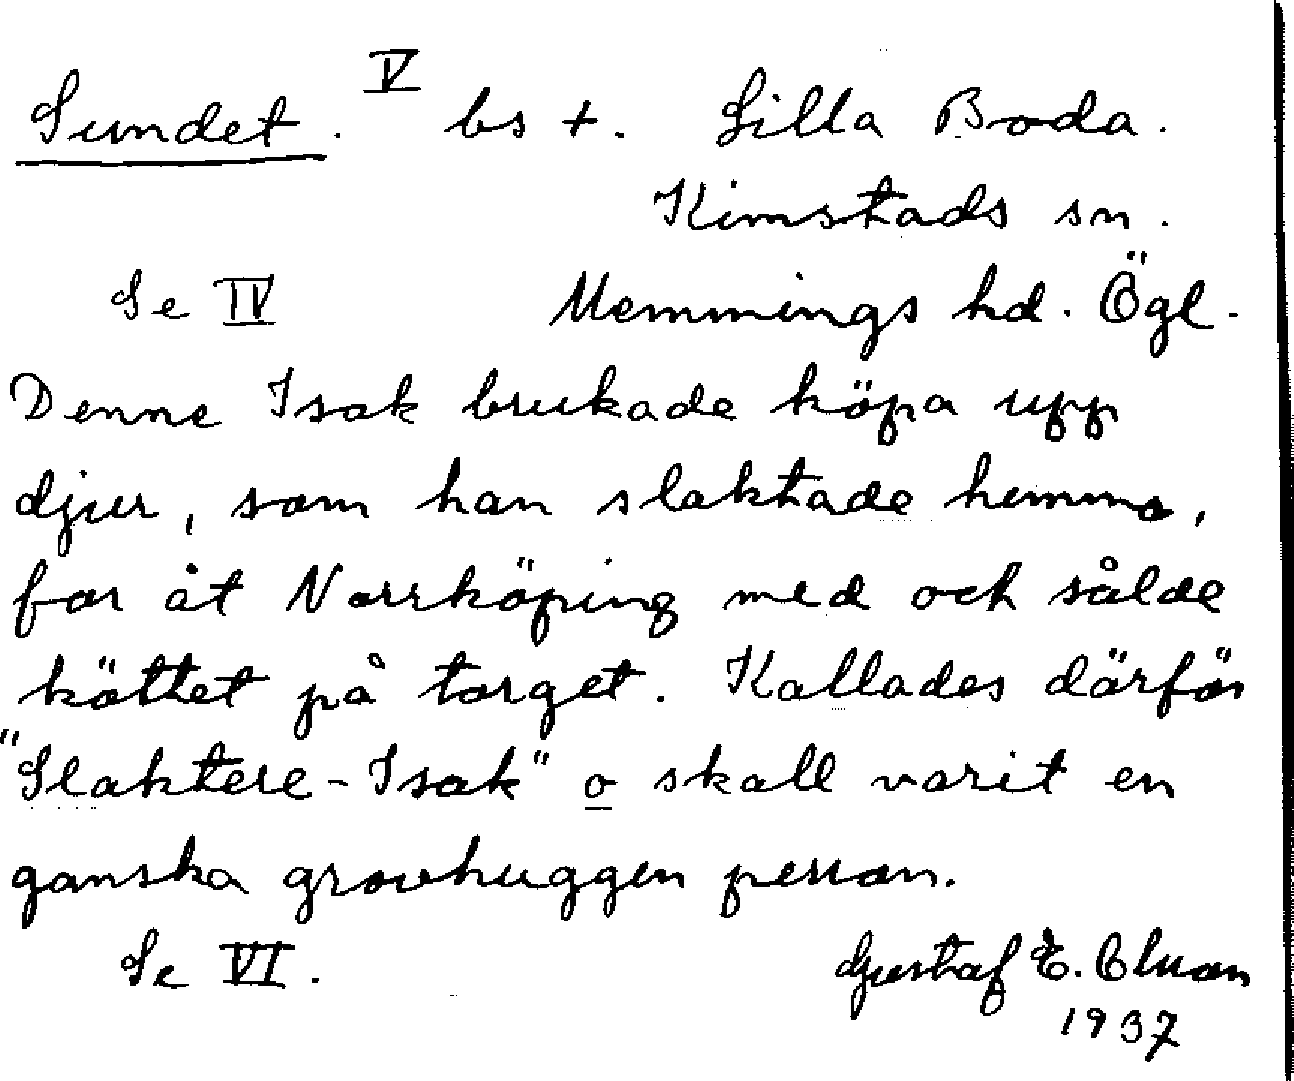 Sundet. V bs +. Lilla Boda.
Kimstads sn.
Se IV Memmings hd. Ögl.
Denne Isak brukade köpa upp
djur, som han slaktade hemma,
for åt Norrköping med och sålde
köttet på torget. Kallades därför
"Slaktere-Isak" o skall varit en
ganska grovhuggen person.
Se VI. Gustaf E.
1937